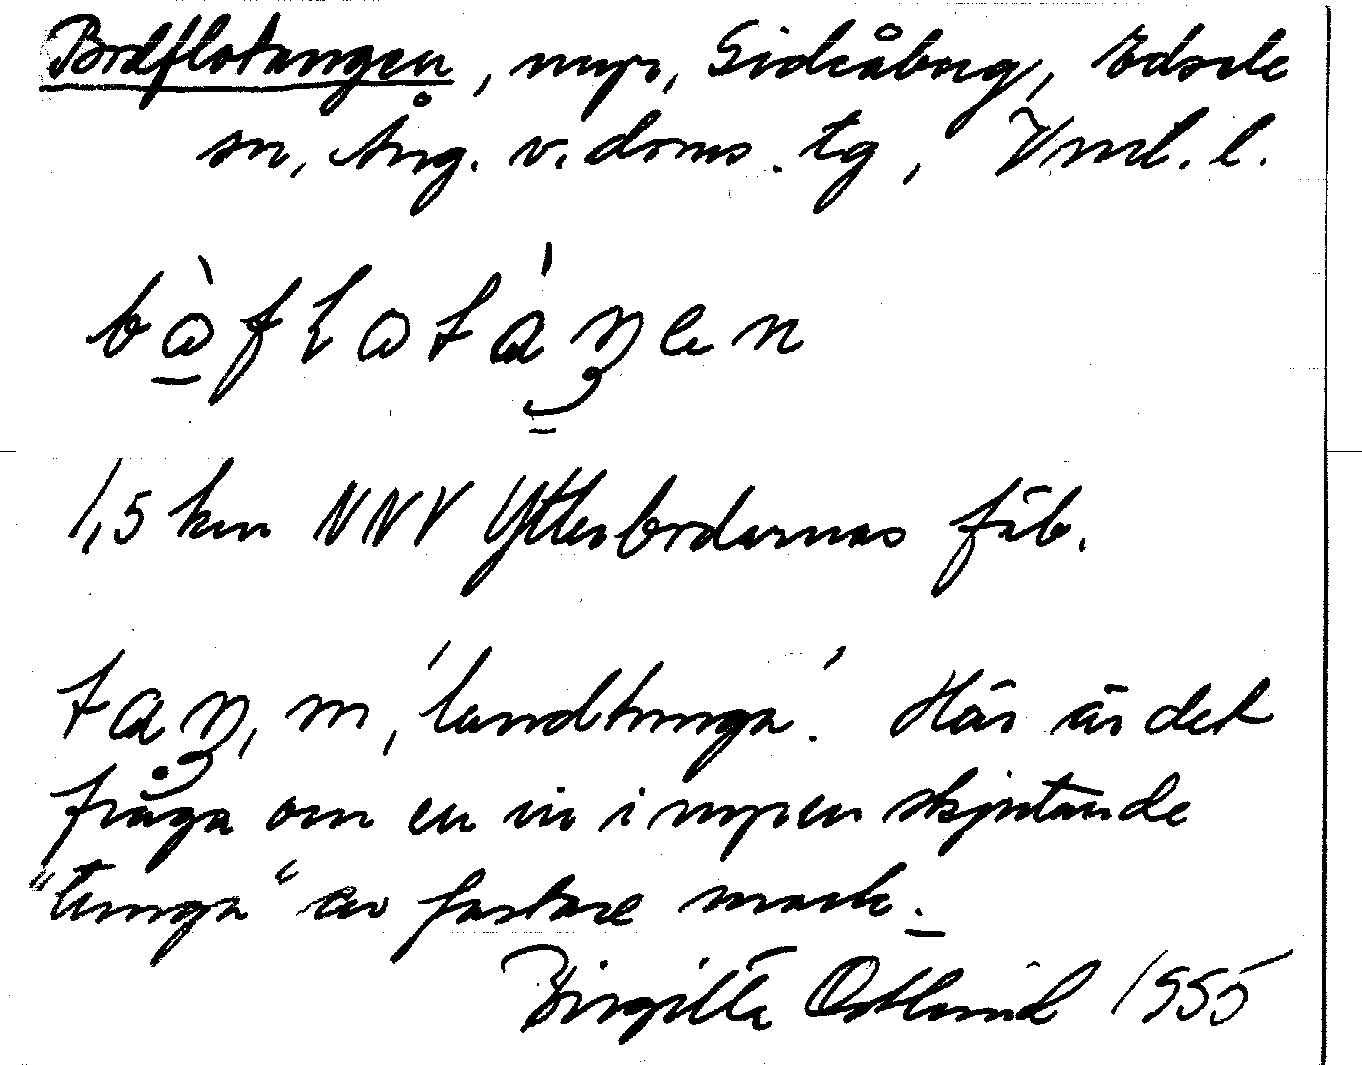 Bodflotangen, myr, Sidåberg, Edsele
sn, Ång. v. doms. tg, Vml. l.
bɷ̀flɷtáŋen
1,5 km NNV Ytterbodarnas fäb.
taŋ, m, 'landtunga'. Här är det
fråga om en in i myren skjutande
"tunga" av fastare mark.
Birgitta Ostlund 1955